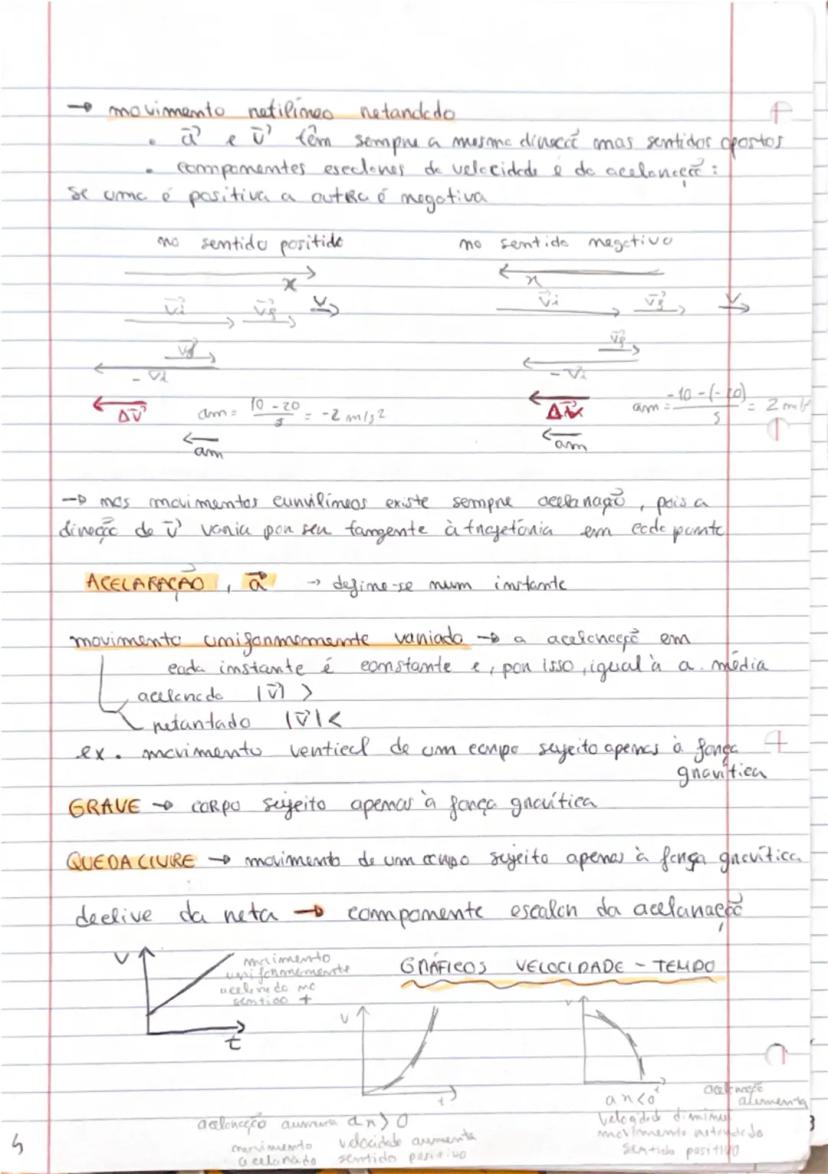 → movimento retilíneo retardado
• a⃗ e v⃗ têm sempre a mesma direção mas sentidos opostos
• componentes escalares da velocidade e da aceleração:
se uma é positiva a outra é negativa
no sentido positido
no sentido negativo
x
x
v⃗i v⃗f v
v⃗i v⃗f v
v⃗f
v⃗f
-v⃗i
-v⃗i
Δv⃗ am = 10 - 20 / 5 = -2 m/s2
Δv⃗ am = -10 - (-20) / 5 = 2 m/s
am
am
→ nos movimentos curvilíneos existe sempre aceleração, pois a
direção de v⃗ varia por ser tangente à trajetória em cada ponto
ACELARAÇÃO, a⃗ → define-se num instante
movimento uniformemente variado → a aceleração em
cada instante é constante e, por isso, igual à a. média
acelerado |v⃗| >
retartado |v⃗| <
ex. movimento vertical de um corpo sujeito apenas à força
gravítica
GRAVE → corpo sujeito apenas à força gravítica
QUEDA LIVRE → movimento de um corpo sujeito apenas à força gravítica
declive da reta → componente escalar da acelaração
v
t
movimento
uniformemente
acelerado no
sentido +
GRÁFICOS VELOCIDADE - TEMPO
v
t
v
t
ax<0
aceleração
aumenta
aceleração aumenta ax>0
velocidade diminui
movimento retardado
sentido positivo
movimento
acelerado
velocidade aumenta
sentido positivo
4